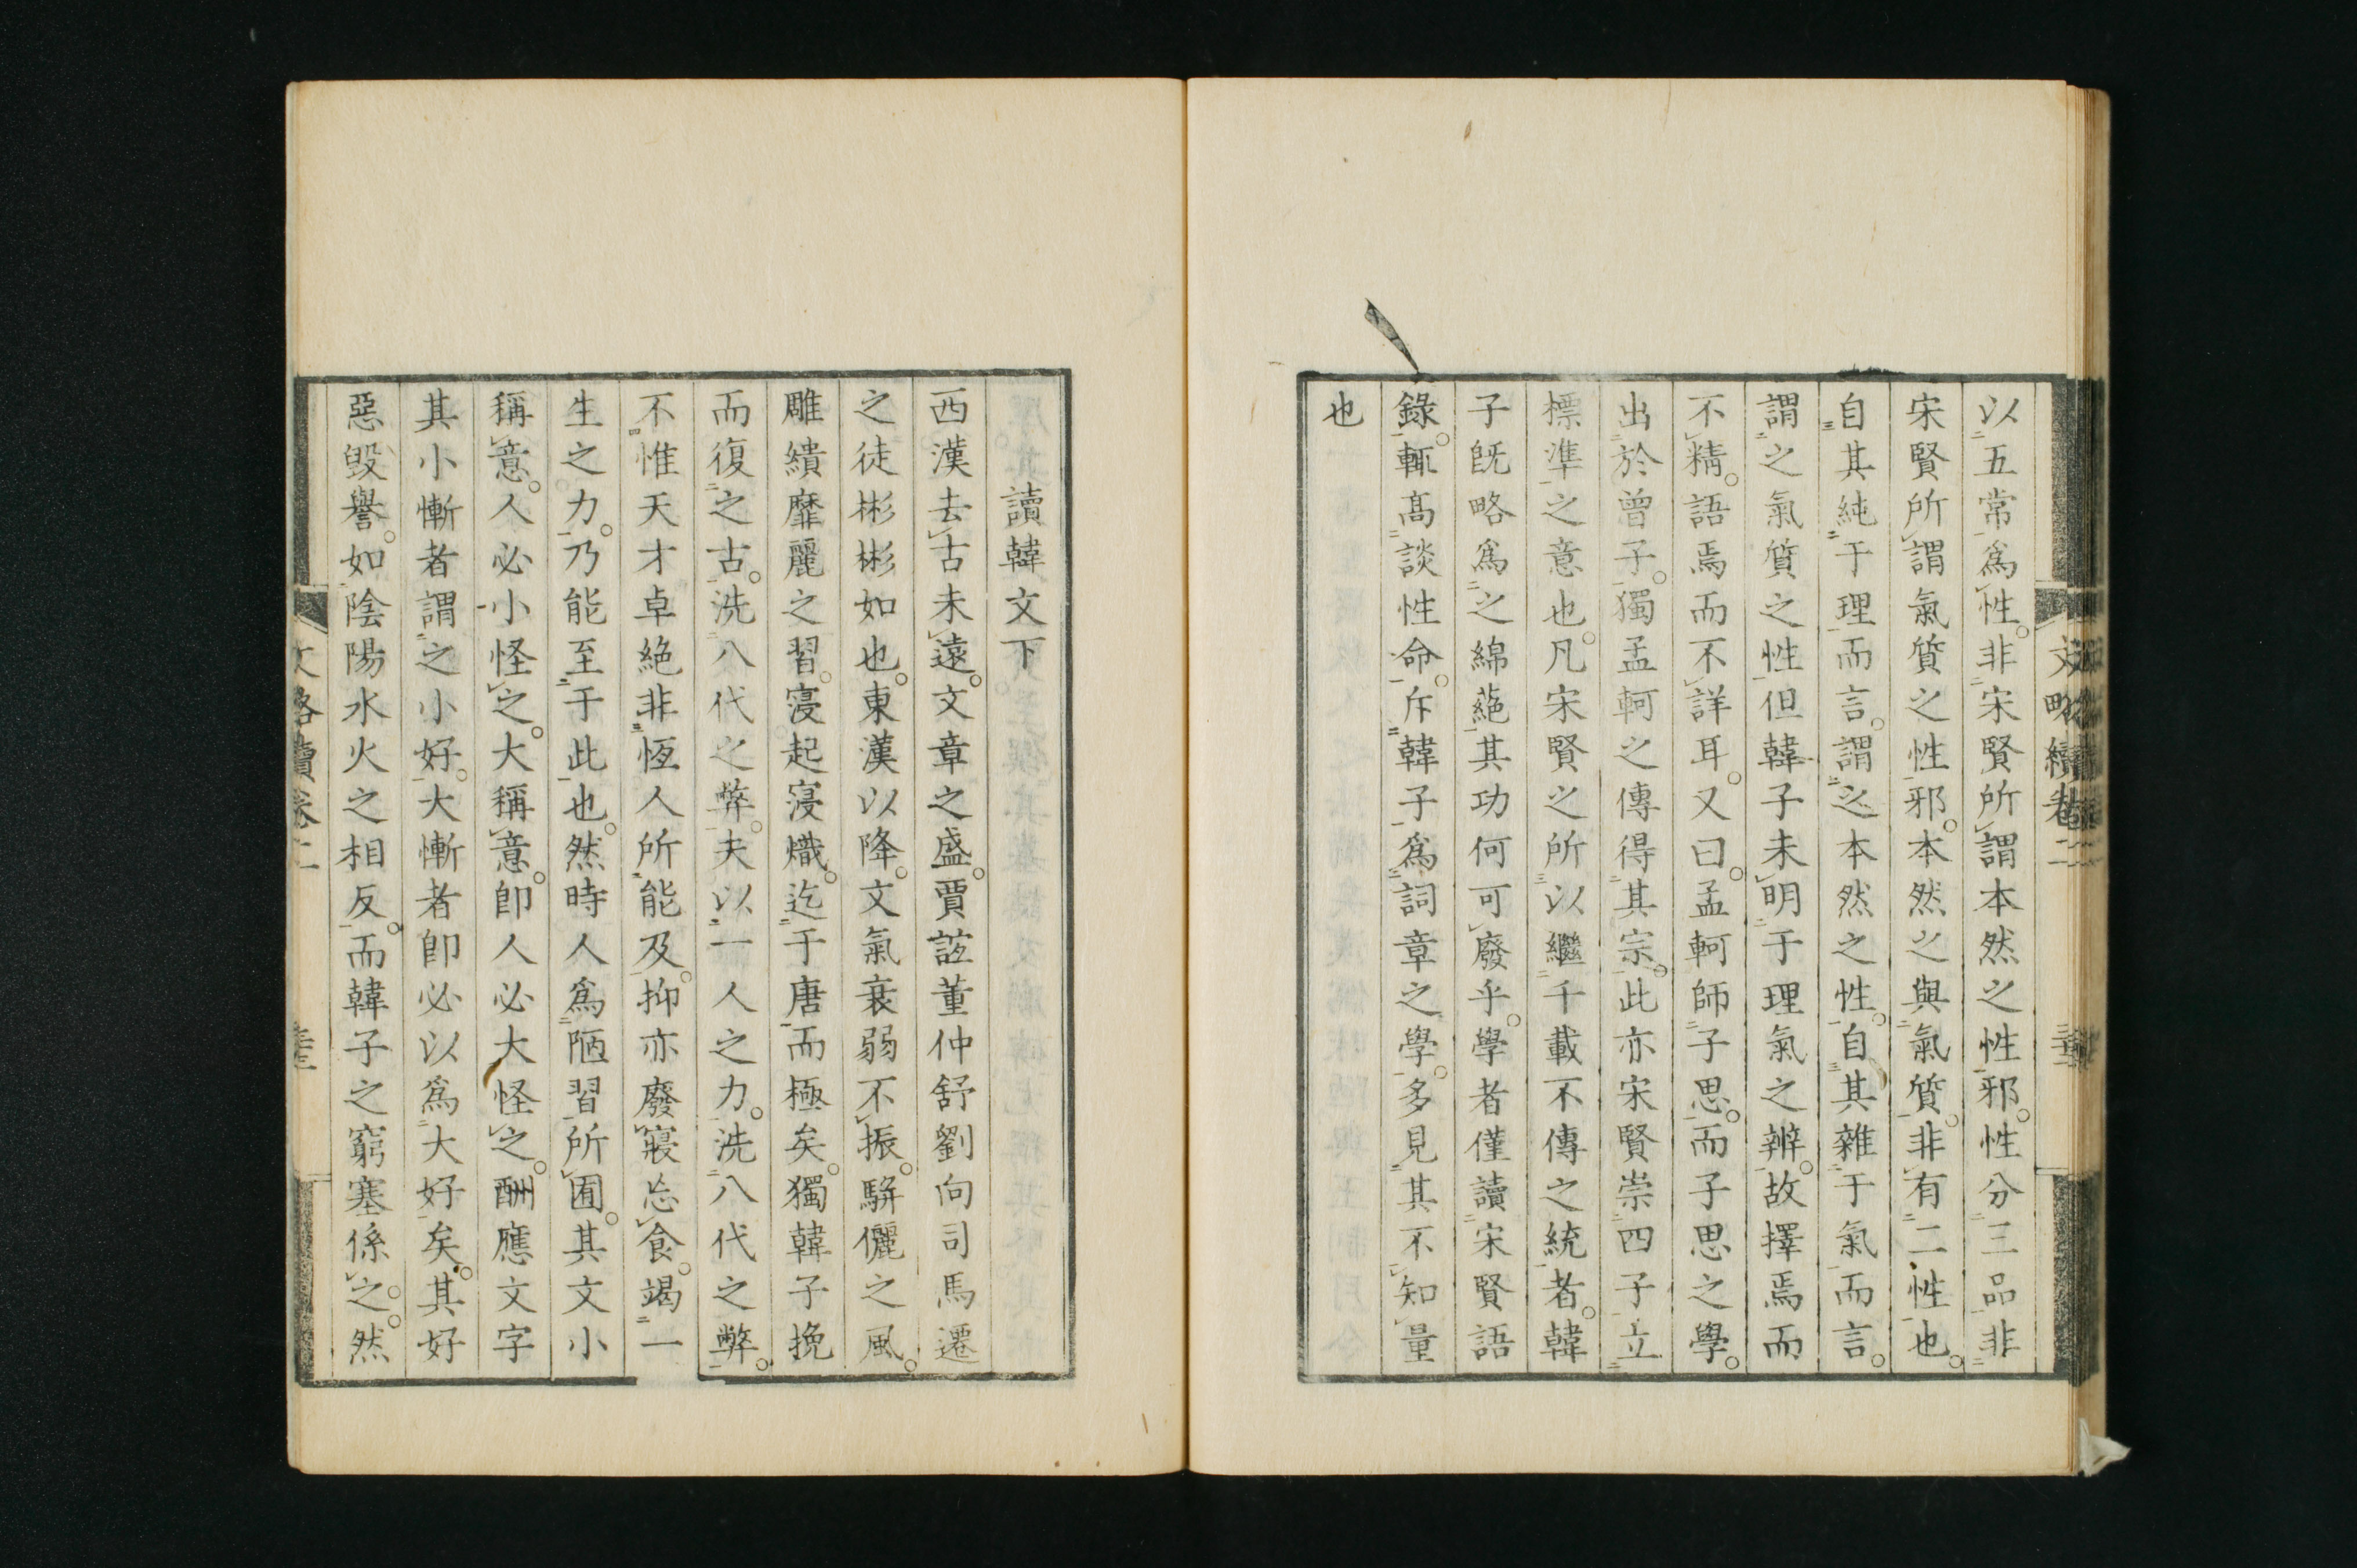 以五常爲性。非宋賢所謂本然之性邪。性分三品非
宋賢所謂氣質之性邪。本然之與氣質。非有二性也。
自其純于理而言。謂之本然之性。自其雜于氣而言。
謂之氣質之性但韓子未明于理氣之辨。故擇焉而
不精。語焉而不詳耳。又曰。孟軻師子思。而子思之學。
出於曾子。獨孟軻之傳得其宗。此亦宋賢崇四子立
標準之意也。凡宋賢之所以繼千載不傳之統者。韓
子既略爲之綿蕝其功何可廢乎。學者僅讀宋賢語
錄。輒高談性命。斥韓子爲詞章之學。多見其不知量
也
讀韓文下
西漢去古未遠。文章之盛。賈誼董仲舒劉向司馬遷
之徒彬彬如也。東漢以降。文氣衰弱不振。駢儷之風。
雕繢靡麗之習。寖起寖熾。迄于唐而極矣。獨韓子挽
而復之古。洗八代之弊。夫以一人之力。洗八代之弊。
不惟天才卓絶非恆人所能及。抑亦廢寢忘食。竭一
生之力。乃能至于此也。然時人爲陋習所囿。其文小
稱意。人必小怪之。大稱意。卽人必大怪之。酬應文字
其小慚者謂之小好。大慚者卽必以爲大好矣。其好
惡毀譽。如陰陽水火之相反。而韓子之窮塞係之。然
文略續卷二